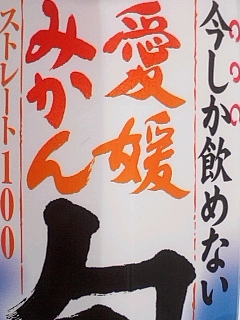 今しか飲めない
愛媛
みかん
ストレート100